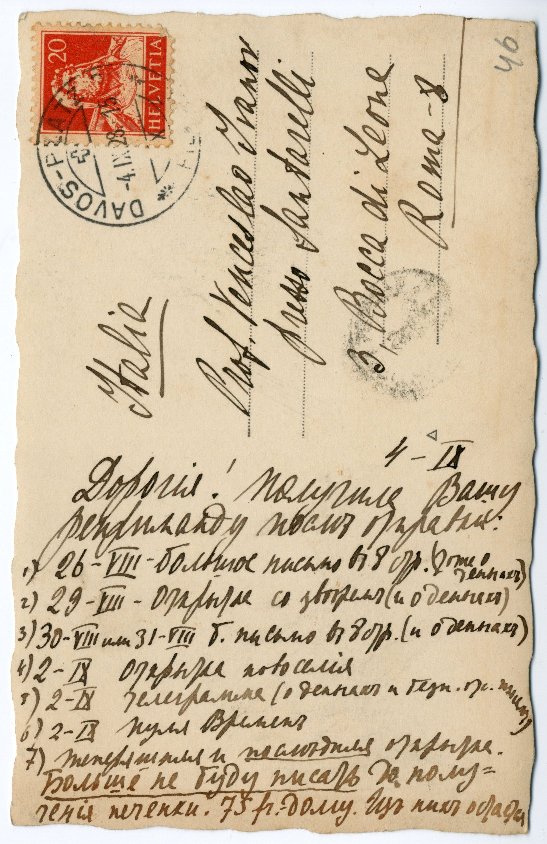 46
20
HELVETIA
DAVOS-PLATZ
-4.IX.26-
Italia
Prof. Venceslao Ivanov
presso Santarelli
3, Bocca di Leone
Roma - 8
4-IX
Дорогія! Получила Вашу
после отправки:
1) 26-VIII-большое письмо въ 8 стр. (тоже о
деньгахъ)
2) 29-VIII- открытка со зверемъ (и о деньгахъ)
3) 30-VIII или 31-VIII б. письмо въ 8 стр. (и о деньгахъ)
4) 2-IX открытка новоселія
5) 2-IX телеграмма (о деньгахъ и
6) 2-IX Временъ
7) теперешняя и последняя открытка.
Больше не буду писать до полу=
ченія печенки. 75 fr. дому. Изъ нихъ